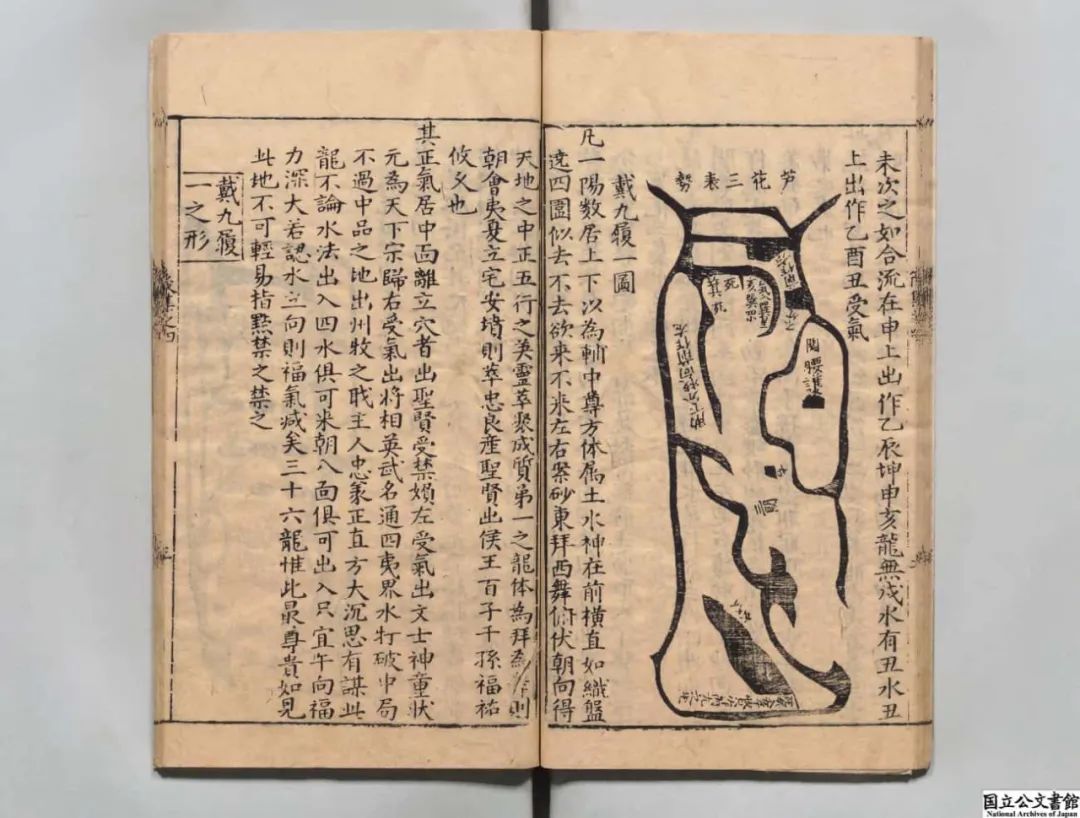 未次之如合流在申上出作乙辰坤申亥龍無戌水有丑水丑
上出作乙酉丑受氣
芦花三裊勢
陶腰誰
死
死
戴九履一圖
凡一陽数居上下以為軸中尊方体属土水神在前横直如織盤
遶四圍似去不去欲来不来左右案砂東拜西舞俯伏朝向得
天地之中正五行之英靈萃聚成質第一之龍体為拜為則
朝會夷夏立宅安墳則萃忠良産聖賢出侯王百子千孫福祐
攸父也
其正氣居中面離立穴者出聖賢受禁嬪左受氣出文士神童状
元為天下宗歸右受氣出將相英武名通四夷界水打破中局
不過中品之地出州牧之戝主人忠豪正直方大沉思有謀此
龍不論水法出入四水俱可来朝八面俱可出入只宜午向福
力深大若認水立向則福氣减矣三十六龍惟此最尊貴如見
此地不可輕易指點禁之禁之
戴九履
一之形
国立公文書館
National Archives of Japan